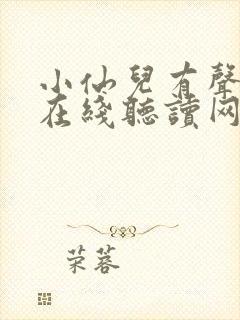 小仙兒有聲
在綫聽讀网
荣蓉